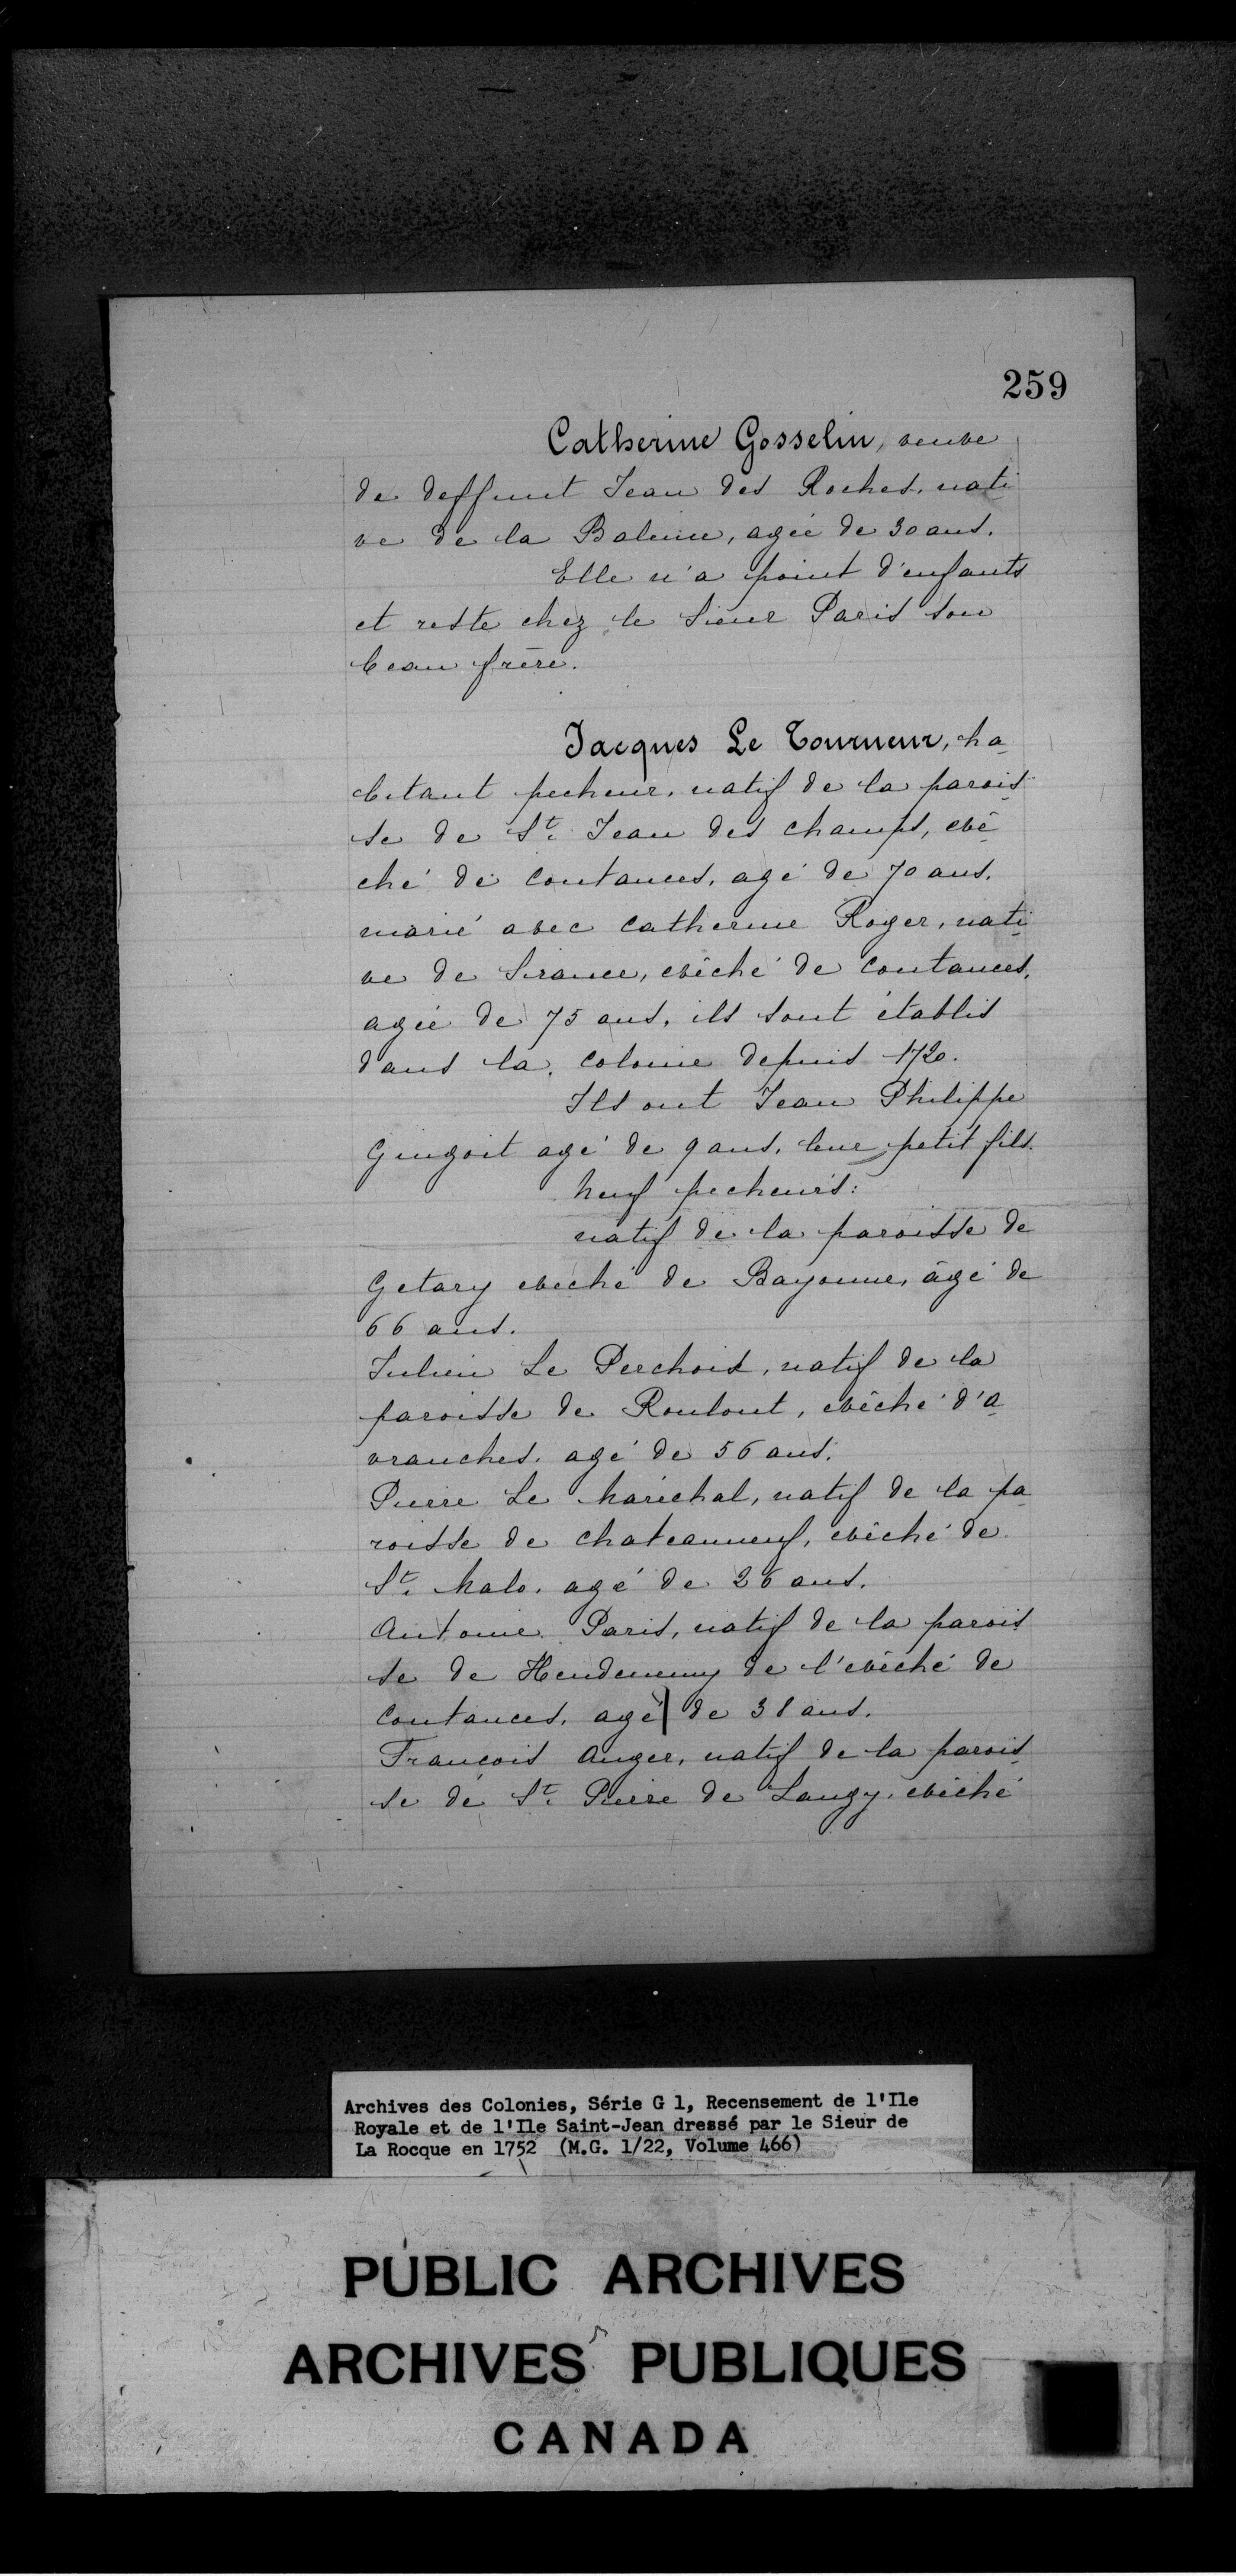 259
Catherine Gosselin, veuve
de deffunt Jean des Roches, nati
ve de la Baleine, agée de 30 ans.
Elle n'a point d'enfants
et reste chez le Sieur Paris son
beau frère.
Jacques Le Tourneur, ha
bitant pecheur, natif de la parois
se de St. Jean des champs, evê
ché de Coutances, agé de 70 ans,
marié avec Catherine Roger, nati
ve de Sirance, evêché de Coutances,
agée de 75 ans, ils sont établis
dans la colonie depuis 1720.
Ils ont Jean Philippe
Gingoit agé de 9 ans, leur petit fils.
Neuf pecheurs:
natif de la paroisse de
Getary eveché de Bayonne, âgé de
66 ans.
Julien Le Perchois, natif de la
paroisse de Roulout, evêché d'a
vranches, agé de 56 ans.
Pierre Le Maréchal, natif de la pa
roisse de chateauneuf, evêché de
St. Malo, agé de 26 ans.
Antoine Paris, natif de la parois
se de de l'evêché de
Coutances, agé de 38 ans.
François Anger, natif de la parois
se de St. Pierre de Langy, evêché
Archives des Colonies, Série G 1, Recensement de l'Ile
Royale et de l'Ile Saint-Jean dressé par le Sieur de
La Rocque en 1752 (M.G. 1/22, Volume 466)
PUBLIC ARCHIVES
ARCHIVES PUBLIQUES
CANADA